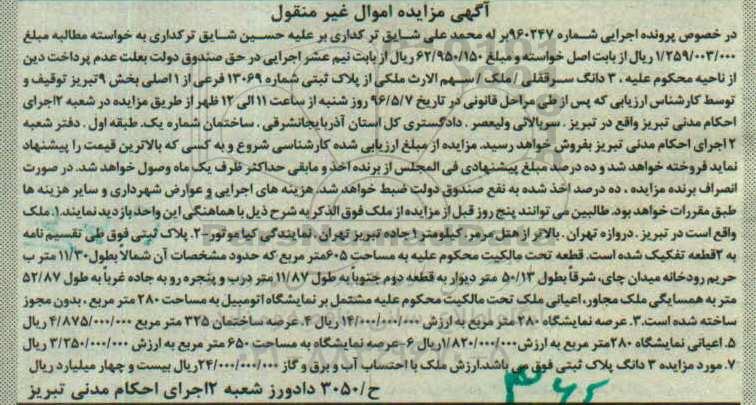 آگهی مزایده اموال غیر منقول
در خصوص پرونده اجرایی شماره ۹۶۰۲۴۷بر له محمد علی شایق ترکداری بر علیه حسین شایق ترکداری به خواسته مطالبه مبلغ
۱/۲۵۹/۰۰۳/۰۰۰ ریال از بابت اصل خواسته و مبلغ ۶۲/۹۵۰/۱۵۰ریال از بابت نیم عشر اجرایی در حق صندوق دولت بعلت عدم پرداخت دین
از ناحیه محکوم علیه ، ۳ دانگ سرقفلی / ملک / سهم الارث ملکی از پلاک ثبتی شماره ۱۳۰۶۹ فرعی از ۱ اصلی بخش ۹تبریز توقیف و
توسط کارشناس ارزیابی که پس از طی مراحل قانونی در تاریخ ۹۶/۵/۷ روز شنبه از ساعت ۱۱الی ۱۲ ظهر از طریق مزایده در شعبه ۲اجرای
احکام مدنی تبریز واقع در تبریز . سربالائی ولیعصر . دادگستری کل استان آذربایجانشرقی . ساختمان شماره یک. طبقه اول . دفتر شعبه
۲ اجرای احکام مدنی تبریز بفروش خواهد رسید. مزایده از مبلغ ارزیابی شده کارشناسی شروع و به کسی که بالاترین قیمت را پیشنهاد
نماید فروخته خواهد شد و ده درصد مبلغ پیشنهادی فی المجلس از برنده اخذ و مابقی حداکثر ظرف یک ماه وصول خواهد شد. در صورت
انصراف برنده مزایده ، ده درصد اخذ شده به نفع صندوق دولت ضبط خواهد شد. هزینه های اجرایی و عوارض شهرداری و سایر هزینه ها
طبق مقررات خواهد بود. طالبین می توانند پنج روز قبل از مزایده از ملک فوق الذکر به شرح ذیل با هماهنگی این واحد بازدید نمایند.۱. ملک
واقع است در تبریز . دروازه تهران . بالاتر از هتل مرمر. کیلومتر ۱ جاده تبریز تهران . نمایندگی کیا موتور-۲. پلاک ثبتی فوق طی تقسیم نامه
به ۲قطعه تفکیک شده است. قطعه تحت مالکیت محکوم علیه به مساحت ۶۰۵متر مربع که حدود مشخصات آن شمالاً بطول ۱۱/۳۰متر ب
حریم رودخانه میدان چای، شرقاً بطول ۵۰/۱۳ متر دیوار به قطعه دوم جنوباً به طول ۱۱/۸۷ متر درب و پنجره رو به جاده غرباً به طول ۵۲/۸۷
متر به همسایگی ملک مجاور، اعیانی ملک تحت مالکیت محکوم علیه مشتمل بر نمایشگاه اتومبیل به مساحت ۲۸۰ متر مربع ، بدون مجوز
ساخته شده است.۳. عرصه نمایشگاه ۲۸۰ متر مربع به ارزش ۱۴/۰۰۰/۰۰۰/۰۰۰ ریال ۴. عرصه ساختمان ۳۲۵ متر مربع ۴/۸۷۵/۰۰۰/۰۰۰ ریال
۵. اعیانی نمایشگاه ۲۸۰متر مربع به ارزش ۱/۸۲۰/۰۰۰/۰۰۰ریال ۶-عرصه نمایشگاه به مساحت ۶۵۰ متر مربع به ارزش ۳/۲۵۰/۰۰۰/۰۰۰ ریال
۷. مورد مزایده ۳ دانگ پلاک ثبتی فوق می باشد.ارزش ملک با احتساب آب و برق و گاز ۲۴/۰۰۰/۰۰۰/۰۰۰ریال بیست و چهار میلیارد ریال
ح/۳۰۵۰ دادورز شعبه ۲اجرای احکام مدنی تبریز